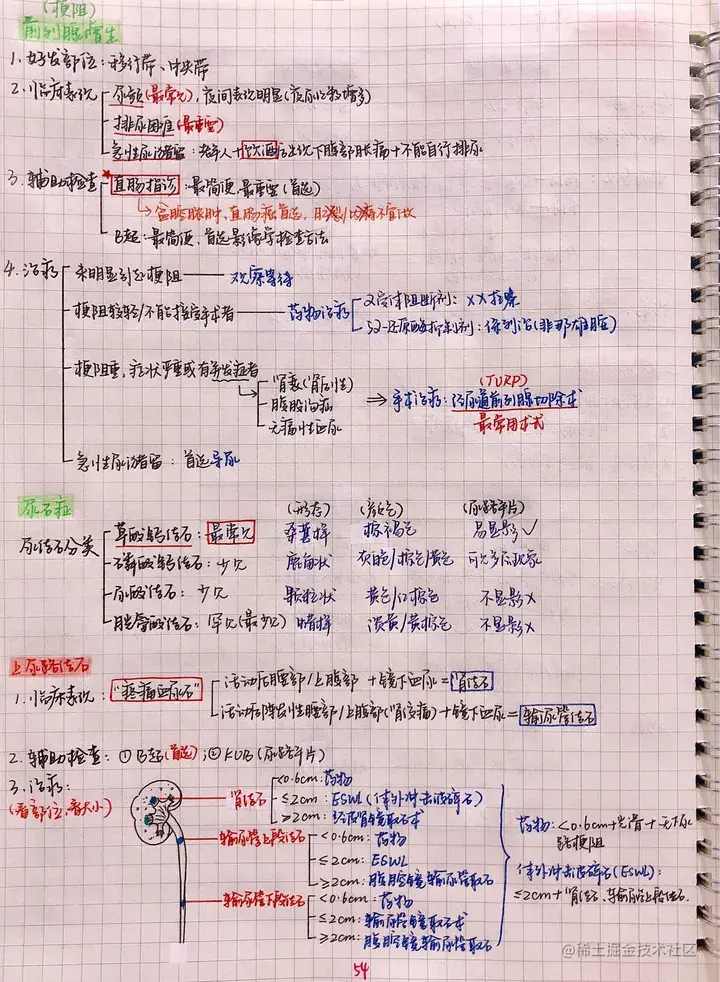 (梗阻)
前列腺增生
1. 好发部位：移行带、中央带
2. 临床表现
尿频(最常见)，夜间表现明显(夜尿次数增多)
排尿困难(最重要)
急性尿潴留：老年人+饮酒后出现下腹部胀痛+不能自行排尿
3. 辅助检查
*直肠指诊：最简便、最重要(首选)
→盆腔脓肿、直肠癌首选，肛裂比痛不宜做
B超：最简便，首选影像学检查方法
4. 治疗
未明显引起梗阻——观察等待
梗阻较轻/不能接受手术者——药物治疗
α受体阻断剂：XX拉嗪
5α-还原酶抑制剂：保列治(非那雄胺)
梗阻重，症状严重或有并发症者
肾衰(肾后性)
腹股沟疝
无痛性血尿
⇒手术治疗：经尿道前列腺切除术
(TURP)
最常用术式
急性尿潴留：首选导尿
尿石症
(形态) (颜色) (尿路平片)
尿结石分类
草酸钙结石：最常见 桑葚样 棕褐色 易显影✓
磷酸钙结石：少见 鹿角状 灰白/棕色/黄色 可见多层现象
尿酸结石：少见 颗粒状 黄色/红棕色 不显影×
胱氨酸结石：罕见(最少见) 蜡样 淡黄/黄棕色 不显影×
上尿路结石
1. 临床表现："疼痛血尿石"
活动后腰部/上腹部+镜下血尿=肾结石
活动后阵发性腰部/上腹部(肾绞痛)+镜下血尿=输尿管结石
2. 辅助检查：①B超(首选)；②KUB(尿路平片)
3. 治疗：
(看部位，看大小)
肾结石
<0.6cm：药物
≤2cm：ESWL(体外冲击波碎石)
≥2cm：经皮肾镜取石术
输尿管上段结石
<0.6cm：药物
≤2cm：ESWL
≥2cm：腹腔镜输尿管取石
输尿管下段结石
<0.6cm：药物
≤2cm：输尿管镜取石术
≥2cm：腹腔镜输尿管取石
药物：<0.6cm+光滑+无下尿
路梗阻
体外冲击波碎石(ESWL)：
≤2cm+肾结石、输尿管上段结石.
54
@稀土掘金技术社区